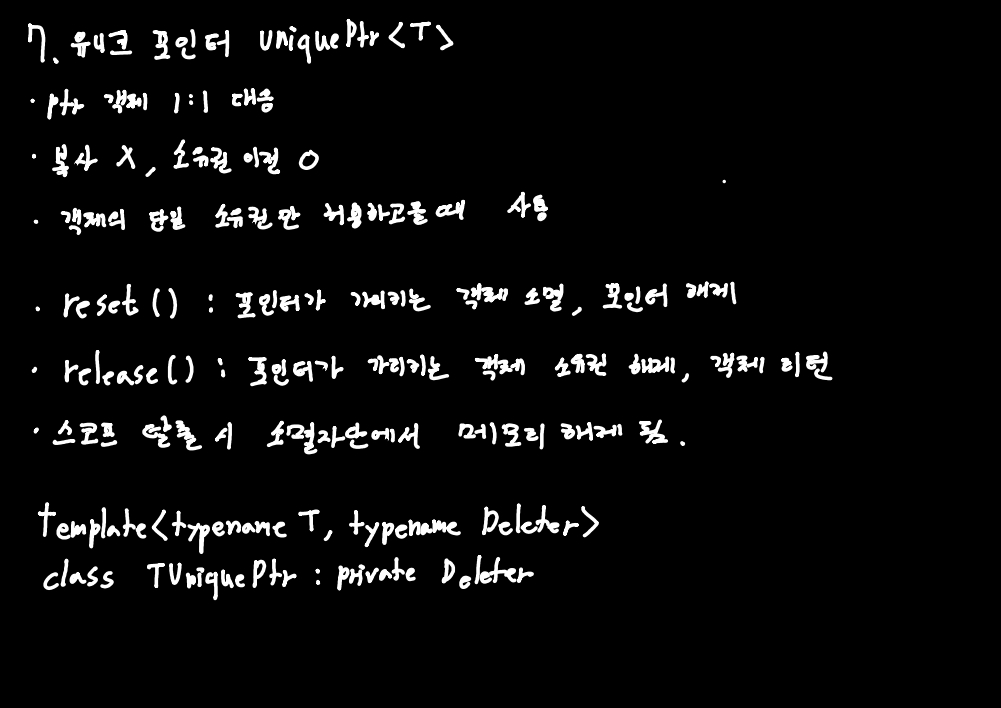 7. 유니크 포인터 UniquePtr<T>
· ptr 객체 1:1 대응
· 복사 X, 소유권 이전 O
· 객체의 단일 소유권만 허용하고플때 사용
· reset() : 포인터가 가리키는 객체 소멸, 포인터 해제
· release() : 포인터가 가리키는 객체 소유권 해제, 객체 리턴
· 스코프 탈출 시 소멸자단에서 메모리 해제 됨.
template<typename T, typename Deleter>
class TUniquePtr : private Deleter